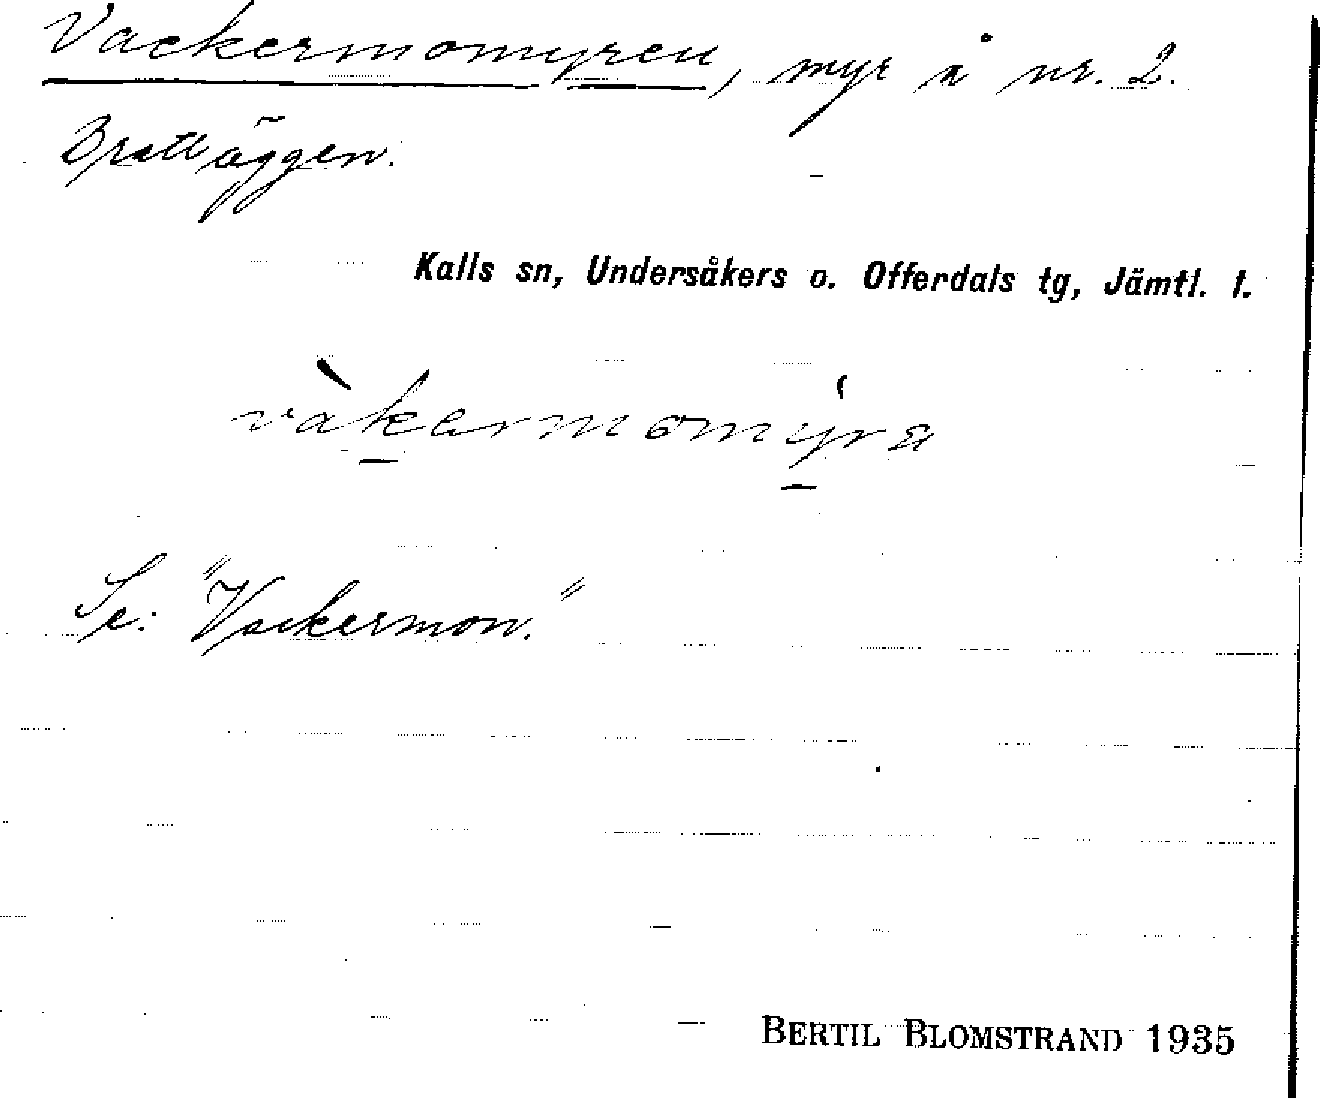 Vackermomyren, myr å nr. 2.
Brattäggen.
Kalls sn, Undersåkers o. Offerdals tg, Jämtl. l.
vàkermomýra
Se: "Vackermon."
BERTIL BLOMSTRAND 1935